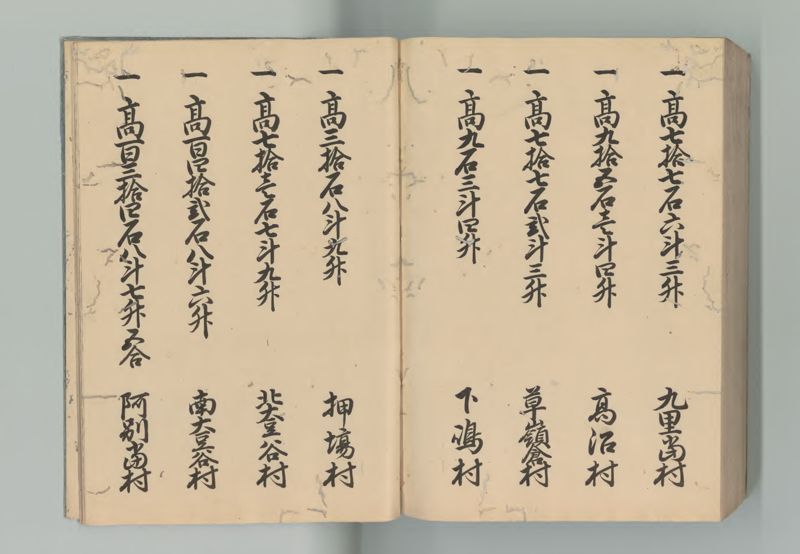 一 高七拾七石六斗三升 九里当村
一 高九拾五石壱斗四升 高沼村
一 高七拾七石弐斗三升 草嶺倉村
一 高九石三斗四升 下鳴村
一 高三拾石八斗九升 押場村
一 高七拾壱石七斗九升 北大豆谷村
一 高百四拾弐石八斗六升 南大豆谷村
一 高百三拾四石八斗七升五合 阿別当村